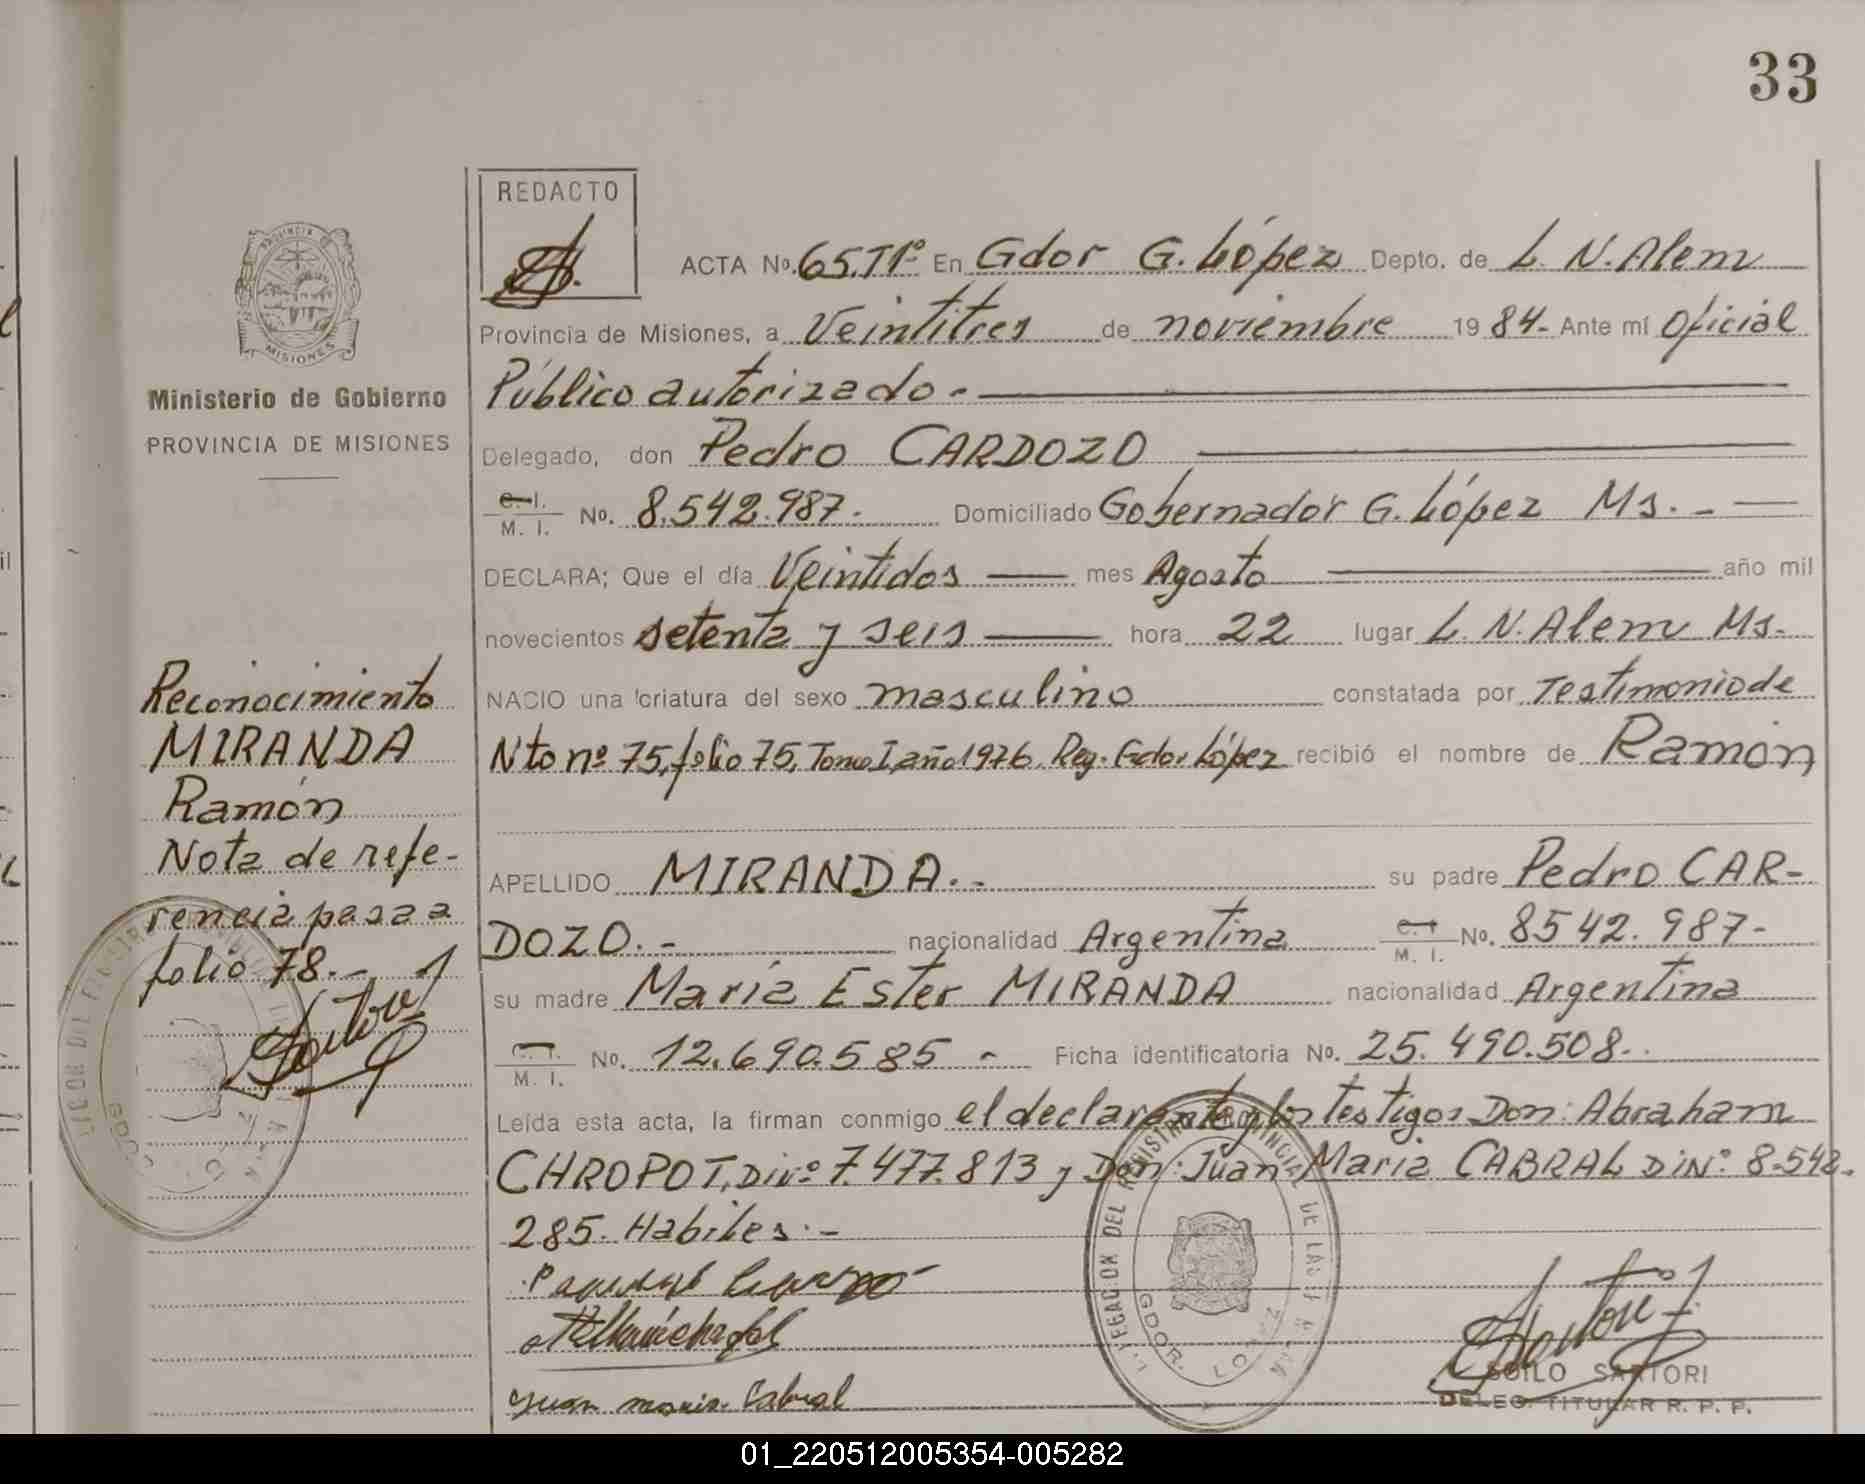 33
REDACTO
PROVINCIA DE
MISIONES
Ministerio de Gobierno
PROVINCIA DE MISIONES
ACTA No. 65.T1º En Gdor G. López Depto. de L. N. Alem
Provincia de Misiones, a Veintitres de noviembre 19 84.- Ante mí Oficial
Público autorizado.-
Delegado, don Pedro CARDOZO
C. I. M. I. No. 8.542.987. Domiciliado Gobernador G. López Ms. -
DECLARA; Que el día Veintidos mes Agosto año mil
novecientos setenta y seis hora 22 lugar L. N. Alem Ms.
NACIO una criatura del sexo masculino constatada por Testimonio de
Nto nº 75, folio 75, Tomo I, año 1976. Reg. Gdor López recibió el nombre de Ramón
APELLIDO MIRANDA.- su padre Pedro CAR-
DOZO.- nacionalidad Argentina C. I. M. I. No. 8542.987-
su madre María Ester MIRANDA nacionalidad Argentina
C. I. M. I. No. 12.690.585 - Ficha identificatoria No. 25.490.508..
Leída esta acta, la firman conmigo el declarante y los testigos Don: Abraham
CHROPOT, Di Nº 7.477.813 y Don: Juan Maria CABRAL DiNº: 8.542.
285. Habiles.-
Juan Maria Cabral
SOILO SARTORI
DELEG. TITULAR R. P. P.
Reconocimiento
MIRANDA
Ramón
Nota de refe-
rencia pasa a
folio 78.-
01_220512005354-005282